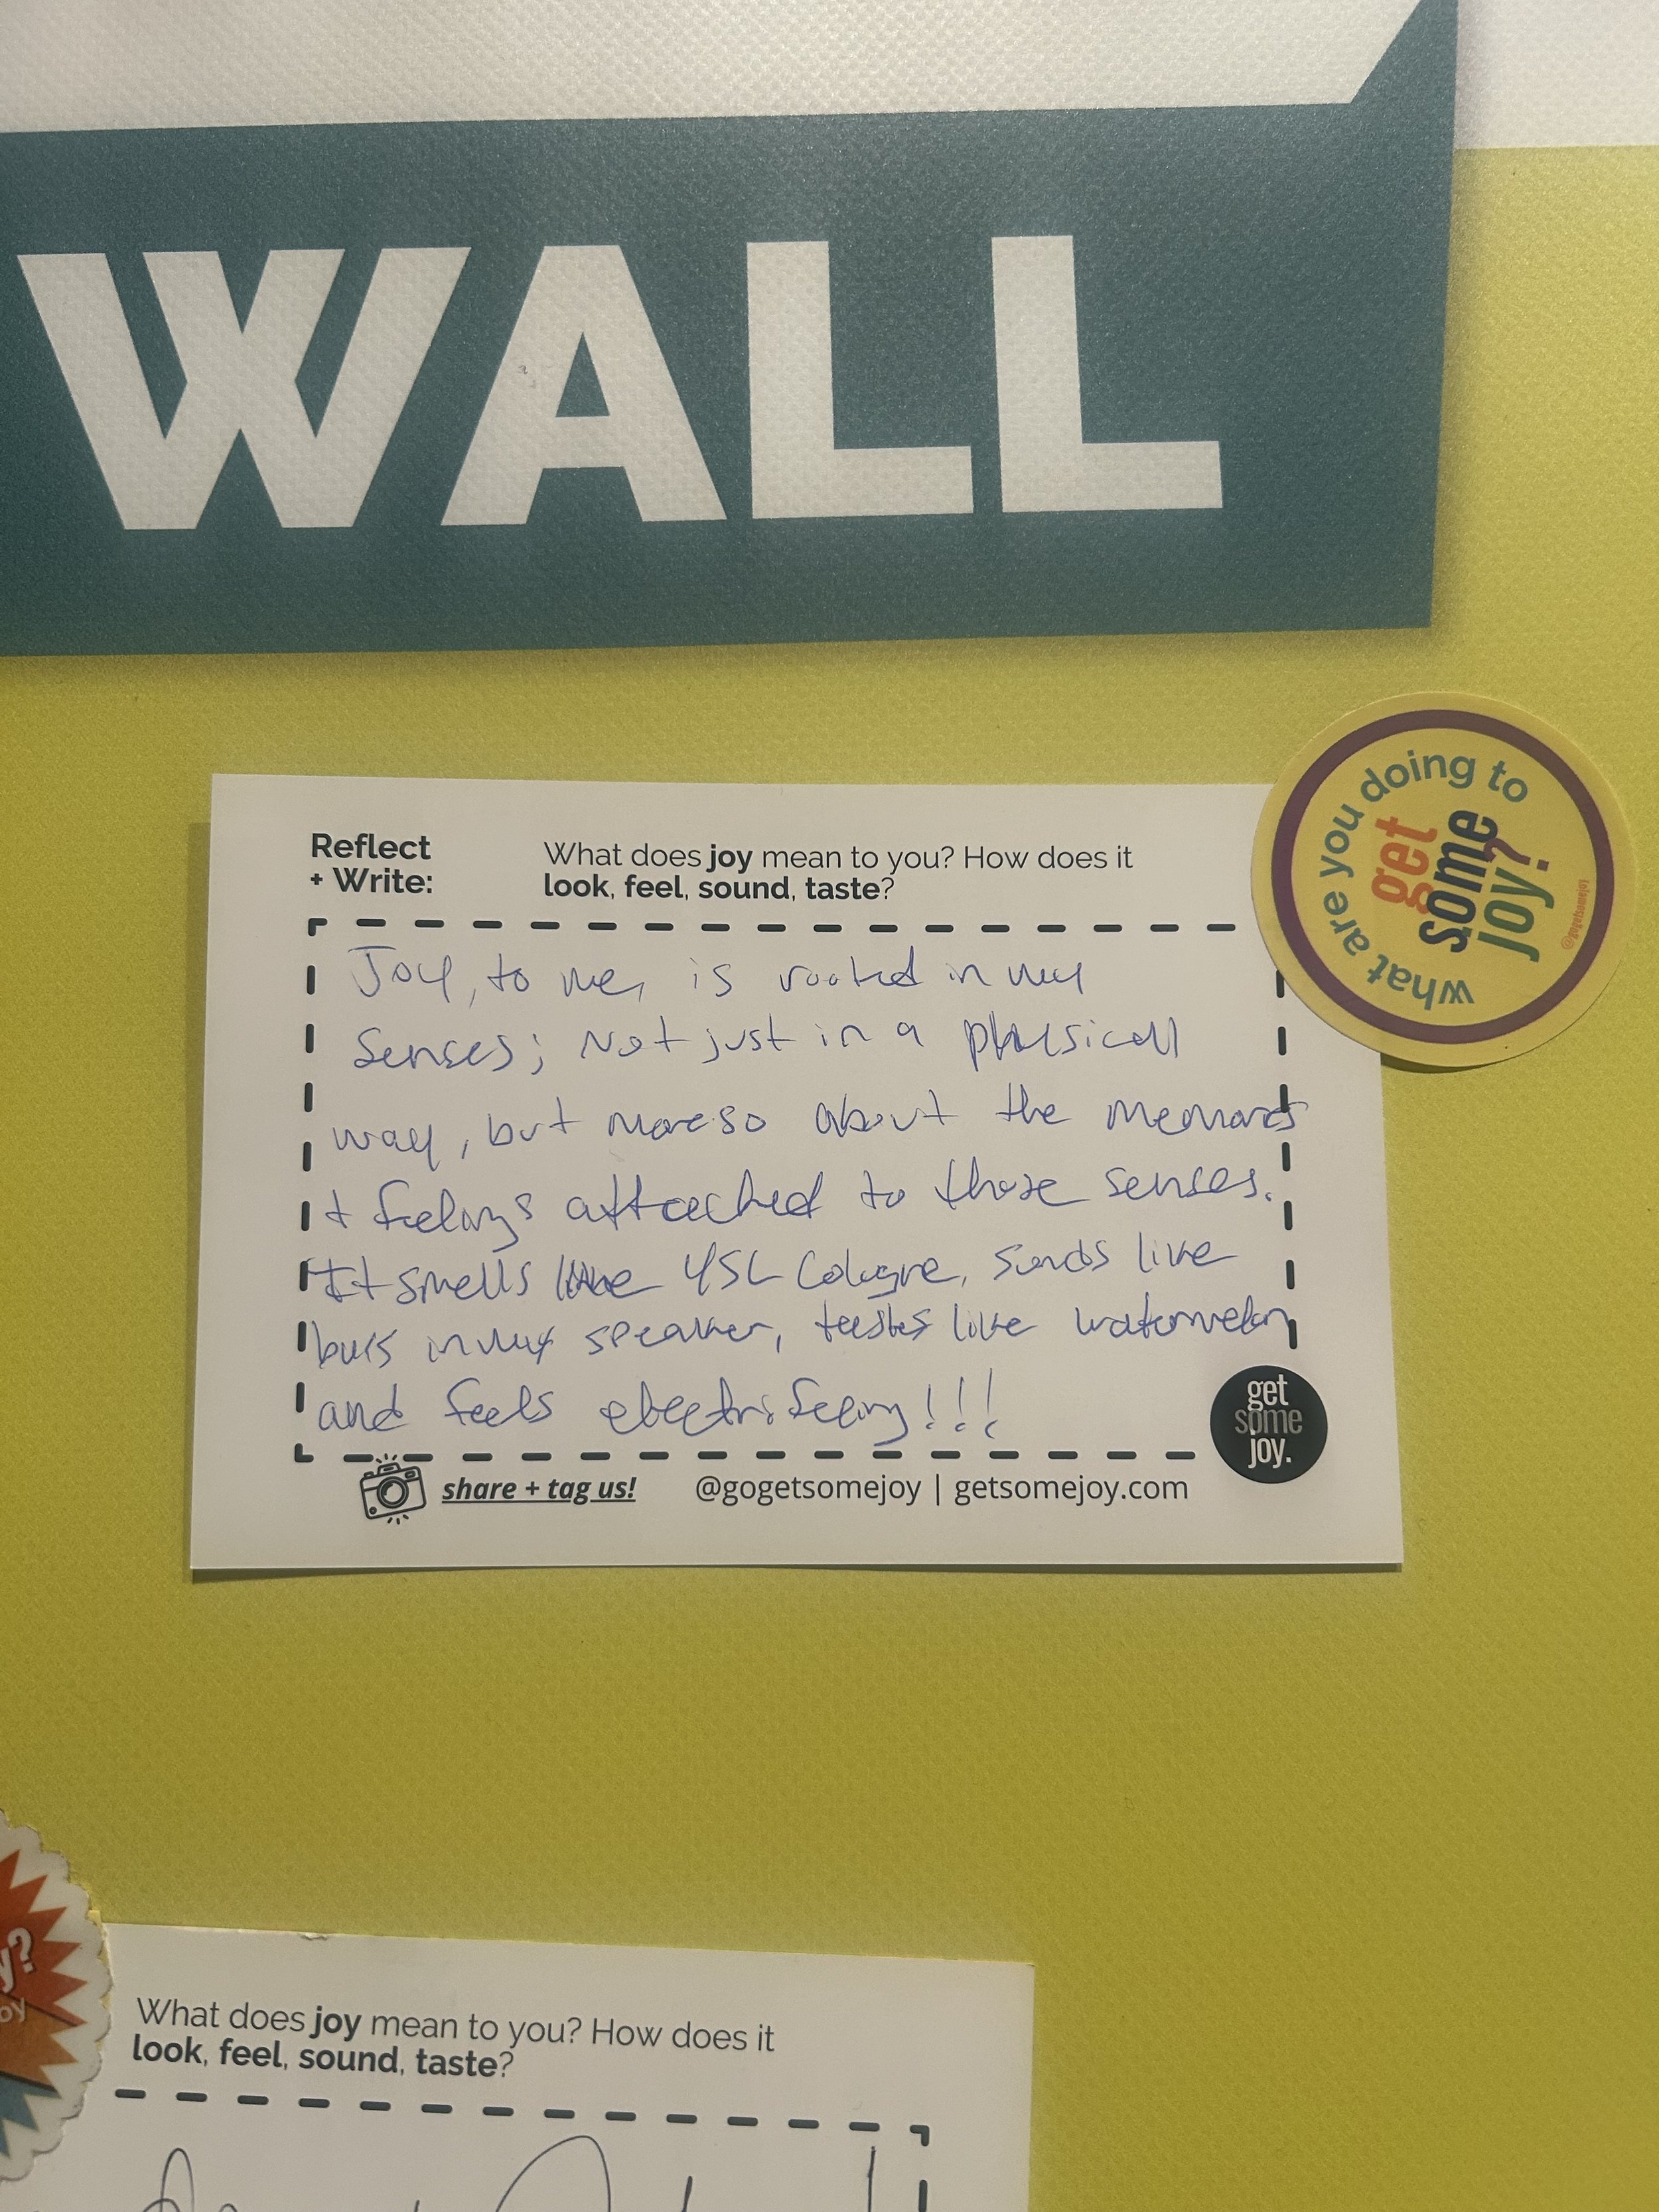 WALL
what are you doing to
get
some
joy?
@gogetsomejoy
Reflect
+ Write:
What does joy mean to you? How does it
look, feel, sound, taste?
Joy, to me, is rooted in my
senses; Not just in a physical
way, but more so about the
+ feelings attached to those senses.
It smells like YSL Cologne, sounds like
in my speaker, tastes like watermelon
and feels !!!
get
some
joy.
share + tag us!
@gogetsomejoy | getsomejoy.com
y?
oy
What does joy mean to you? How does it
look, feel, sound, taste?